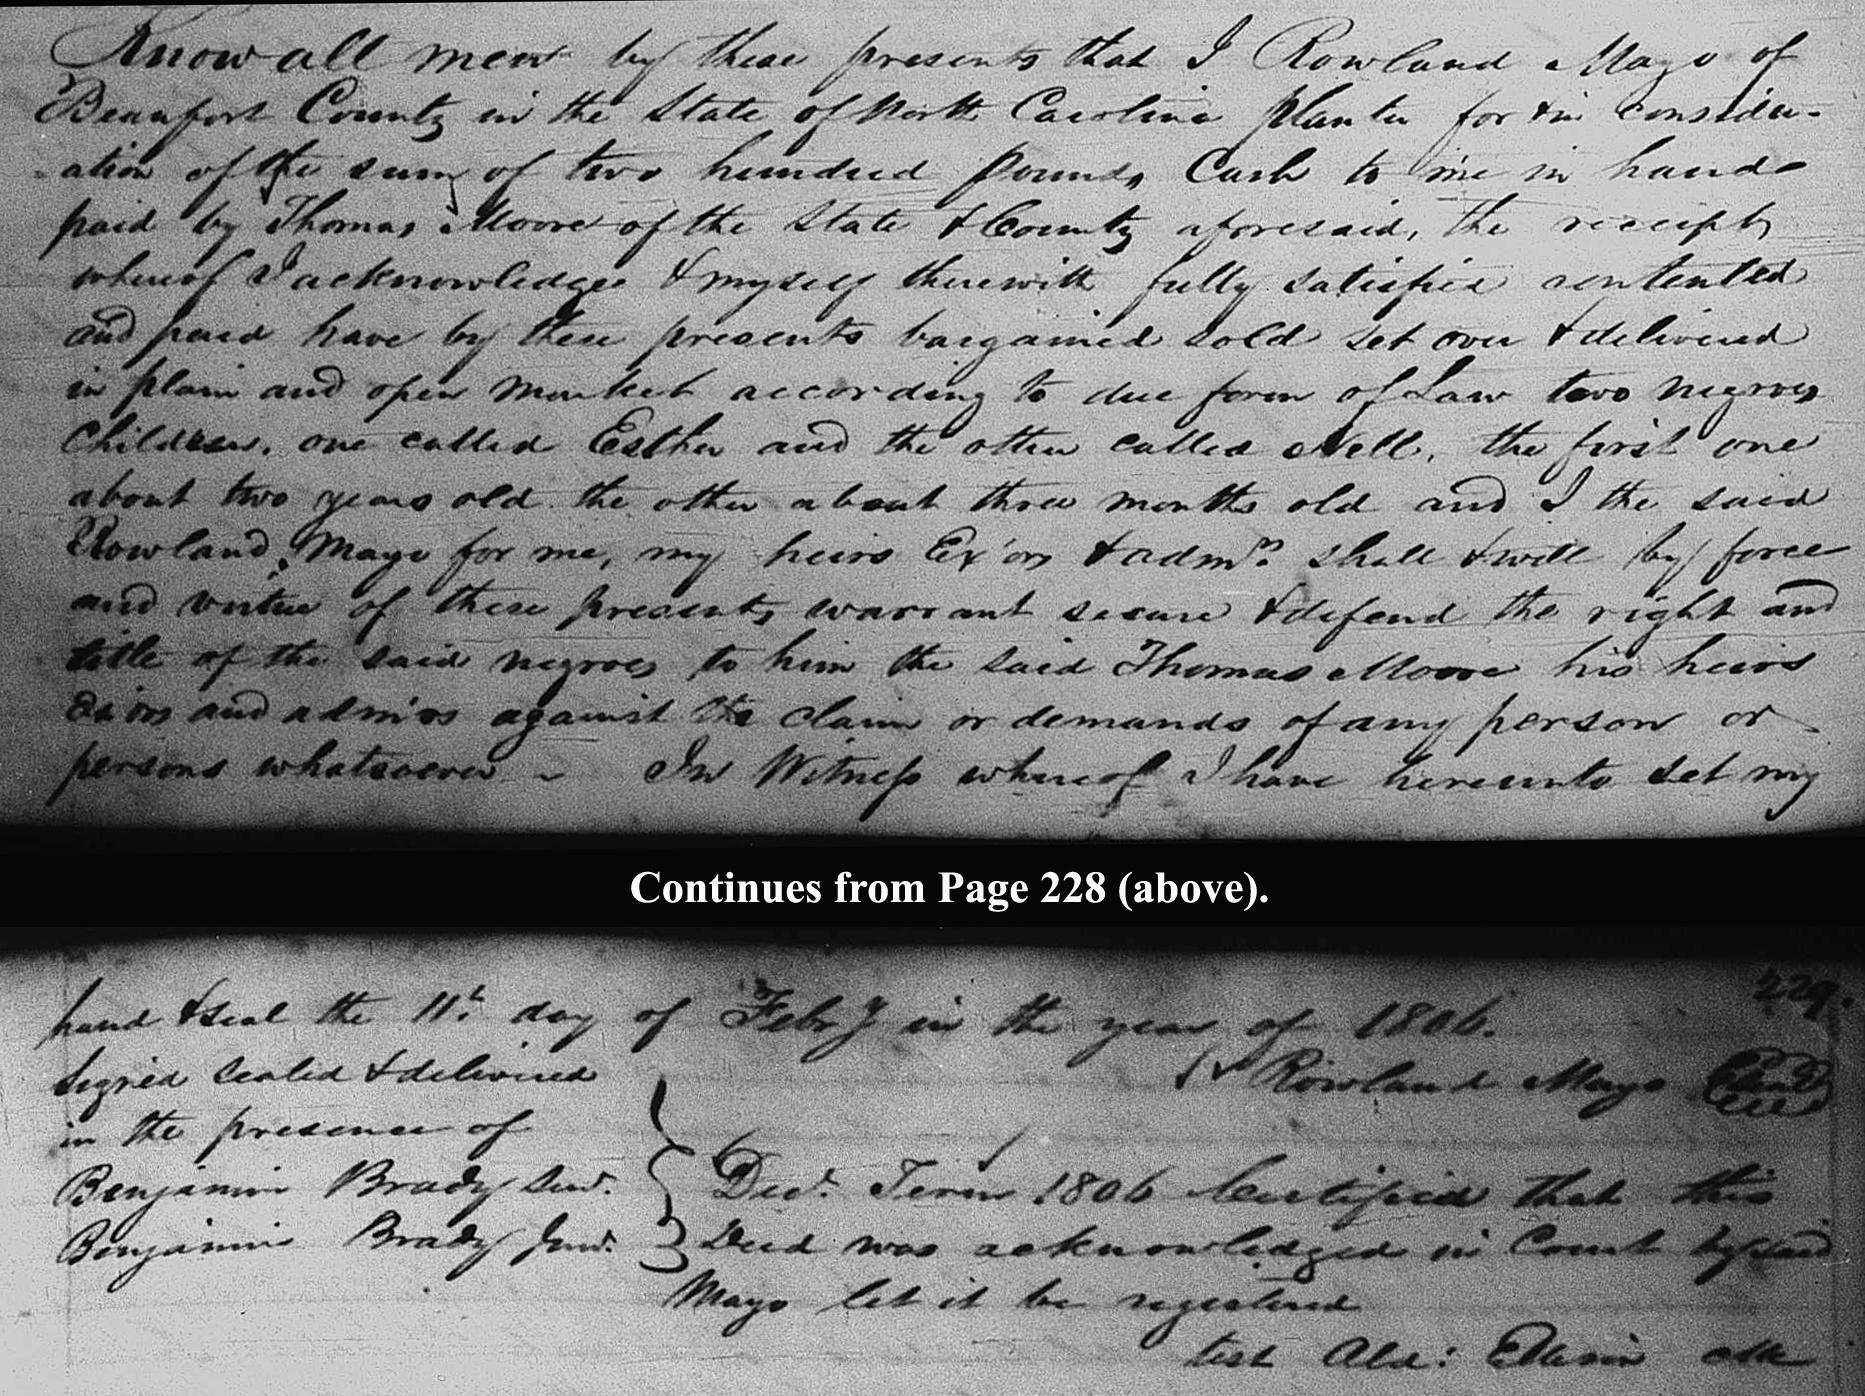 Know all men by these presents that I Rowland Mayo of
Beaufort County in the State of North Carolina planter for & in consider-
ation of the sum of two hundred pounds Cash to me in hand
paid by Thomas Moore of the State & County aforesaid, the receipt
whereof I acknowledge & myself therewith fully satisfied contented
and paid have by these presents bargained sold set over & delivered
in plain and open Market according to due form of Law two negroes
Children, one called Esther and the other called Nell, the first one
about two years old the other about three months old and I the said
Rowland Mayo for me, my heirs Ex'ors & admrs. shall & will by force
and virtue of these presents warrant secure & defend the right and
title of the said negroes to him the said Thomas Moore his heirs
Ex'ors and adm'os against the claim or demands of any person or
persons whatsoever ~ In Witness whereof I have hereunto set my
Continues from Page 228 (above).
229.
hand & seal the 11th. day of Febry in the year of 1806.
Signed Sealed & delivered Rowland Mayo
in the presence of
Benjamin Brady Senr. Decr. Term 1806 Certified that this
Benjamin Brady Junr. Deed was acknowledged in Court by said
Mayo let it be registered
test Ald: